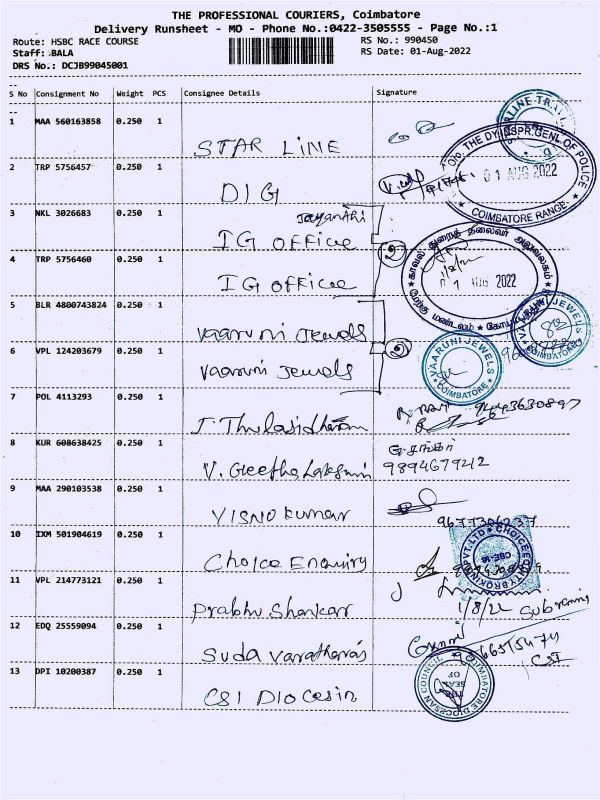 THE PROFESSIONAL COURIERS, Coimbatore
Delivery Runsheet - MO - Phone No.:0422-3505555 - Page No.:1
Route: HSBC RACE COURSE RS No.: 990450
Staff: BALA RS Date: 01-Aug-2022
DRS No.: DCJB99045001
S No Consignment No Weight PCS Consignee Details Signature
1 MAA 560163858 0.250 1 STAR LINE
2 TRP 5756457 0.250 1 DIG
O/o. THE DY.INSPR.GENL OF POLICE
01 AUG 2022
* COIMBATORE RANGE *
3 NKL 3026683 0.250 1 Jayanthi
IG office
4 TRP 5756460 0.250 1 IG office
காவல் துறைத் தலைவர் அலுவலகம்
1/8/22
01 AUG 2022
மேற்கு மண்டலம்
5 BLR 4800743824 0.250 1 Vaaruni Jewels
VAARUNI JEWELS
COIMBATORE
6 VPL 124203679 0.250 1 Vaaruni Jewels
VAARUNI JEWELS
COIMBATORE
7 POL 4113293 0.250 1 J. Thulasidharan 9443630897
8 KUR 608638425 0.250 1 V. Geetha Lakshmi
9894679212
9 MAA 290103538 0.250 1 VISNU Kumar
9677306237
10 IXM 501904619 0.250 1 Choice Enquiry
CHOICE EQUITY BROKING PVT.LTD
CBE-18
11 VPL 214773121 0.250 1 Prabhu Shankar
1/8/22
12 EDQ 25559094 0.250 1 Suda varatharas
13 DPI 10200387 0.250 1 CSI DIOcesin
CSI
COIMBATORE DIOCESAN COUNCIL
THE SEAL OF